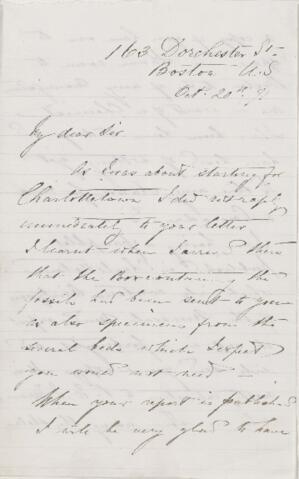 163 Dorchester St.
Boston U.S
Oct. 20th
My dear Sir
As I was about starting for
Charlottetown I did not reply
immediately to your letter
I learnt when I arrived there
that the box containing the
fossils had been sent to you
as also specimens from the
several beds which I expect
you would not need —
When your report is published
I will be very glad to have